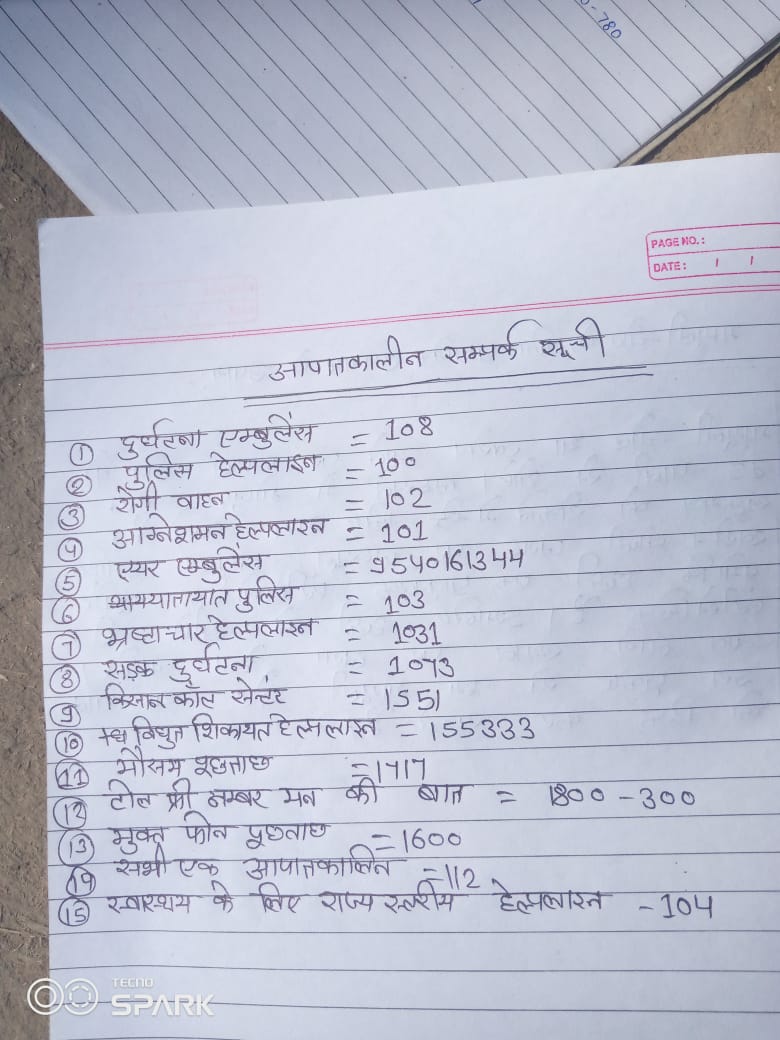 - 780
PAGE NO.:
DATE: / /
आपातकालीन सम्पर्क सूची
① दुर्घटना एम्बुलेंस = 108
② पुलिस हेल्पलाइन = 100
③ रोगी वाहन = 102
④ अग्निशमन हेल्पलाइन = 101
⑤ एयर एम्बुलेंस = 9540161344
⑥ यातायात पुलिस = 103
⑦ भ्रष्टाचार हेल्पलाइन = 1031
⑧ सड़क दुर्घटना = 1073
⑨ किसान कॉल सेन्टर = 1551
⑩ विधुत शिकायत हेल्पलाइन = 155333
⑪ मौसम पूछताछ = 1717
⑫ टोल फ्री नम्बर मन की बात = 1800 - 300
⑬ मुक्त फोन पूछताछ = 1600
⑭ सभी एक आपातकालिन = 112
⑮ स्वास्थय के लिए राज्य स्तरीय हेल्पलाइन - 104
TECNO
SPARK